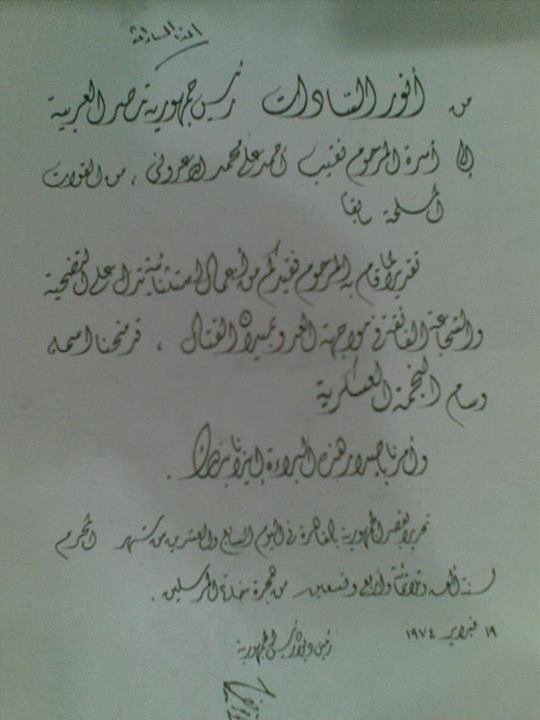 من أنور السادات رئيس جمهورية مصر العربية
إلى أسرة المرحوم نقيب أحمد علي محمد ، من القوات
المسلحة سابقا
تقديرا لما قام به المرحوم فقيدكم من أعمال استثنائية تدل على التضحية
والشجاعة الفائقة في مواجهة العدو بميدان القتال ، قد منحنا اسمه
وسام النجمة العسكرية
وأمرنا بإصدار هذه البراءة إيذانا بذلك .
تحريرا بقصر الجمهورية بالقاهرة في اليوم السابع والعشرين من شهر المحرم
لسنة ألف وثلاثمائة وأربع وتسعين من هجرة خاتم المرسلين .
١٩ فبراير ١٩٧٤
رئيس ديوان رئيس الجمهورية